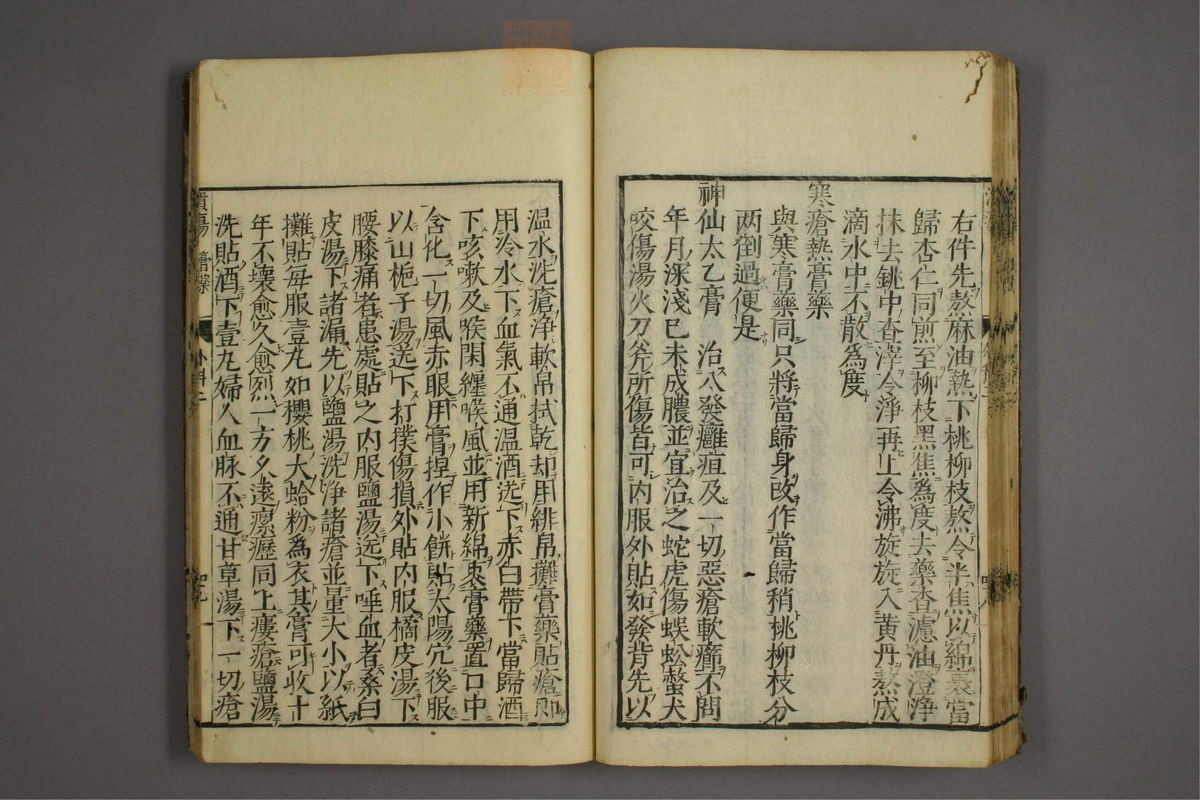 右件先熬麻油熱下桃柳枝熬令半焦以綿裹當
歸杏仁同煎至柳枝黑焦為度去藥查濾油澄淨
抹去銚中查滓令淨再上令沸旋旋入黄丹熬成
滴水中不散為度
寒瘡熱膏藥
與寒膏藥同只將當歸身改作當歸稍桃柳枝分
两倒過便是
神仙太乙膏 治八發癰疽及一切惡瘡軟癤不問
年月深淺已未成膿並宜治之蛇虎傷蜈蚣螫犬
咬傷湯火刀斧所傷皆可内服外貼如發背先以
温水洗瘡净軟帛拭乾却用緋帛攤膏藥貼瘡即
用冷水下血氣不通温酒送下赤白帶下當歸酒
下咳嗽及喉閉纏喉風並用新綿裹膏藥置口中
含化一切風赤眼用膏捏作小餅貼太陽穴後服
以山梔子湯送下打撲傷損外貼内服橘皮湯下
腰膝痛者患處貼之内服鹽湯送下唾血者桑白
皮湯下諸漏先以鹽湯洗净諸瘡並量大小以紙
攤貼每服壹丸如櫻桃大蛤粉為衣其膏可收十
年不壞愈久愈烈一方久遠瘰癧同上慶瘡鹽湯
洗貼酒下壹丸婦人血脉不通甘草湯下一切瘡
外科二